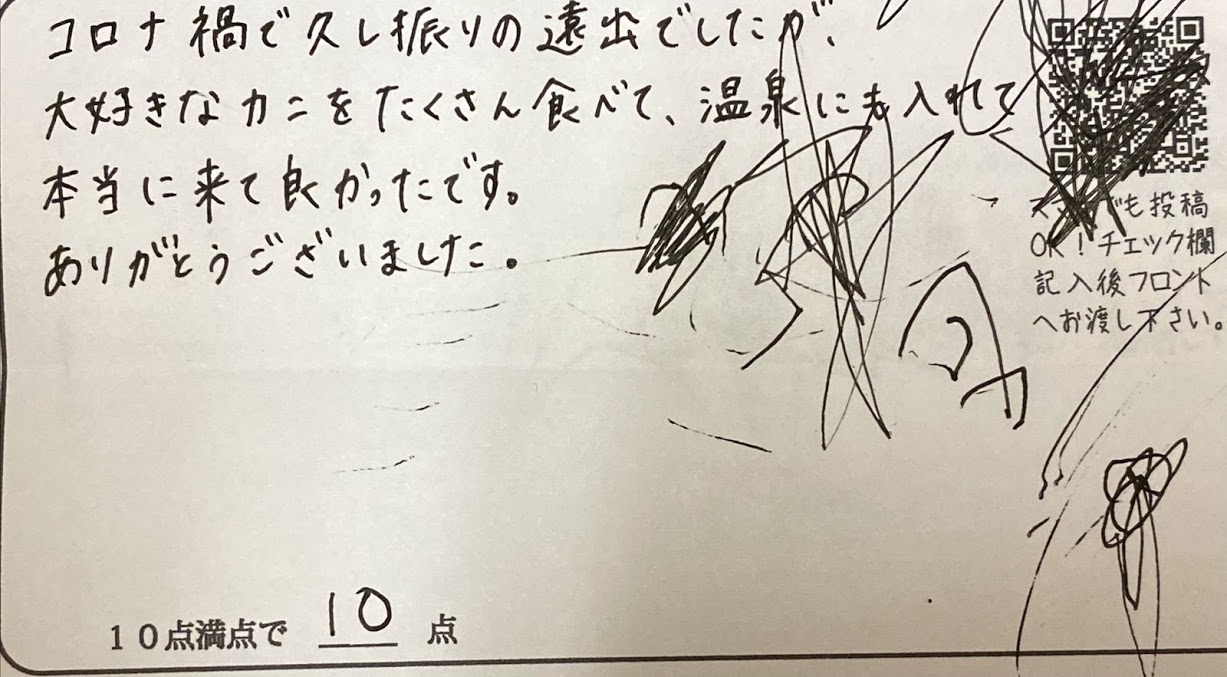 コロナ禍で久し振りの遠出でしたが、
大好きなカニをたくさん食べて、温泉にも入れて
本当に来て良かったです。
ありがとうございました。
スマホでも投稿
OK!チェック欄
記入後フロント
へお渡し下さい。
10点満点で 10 点